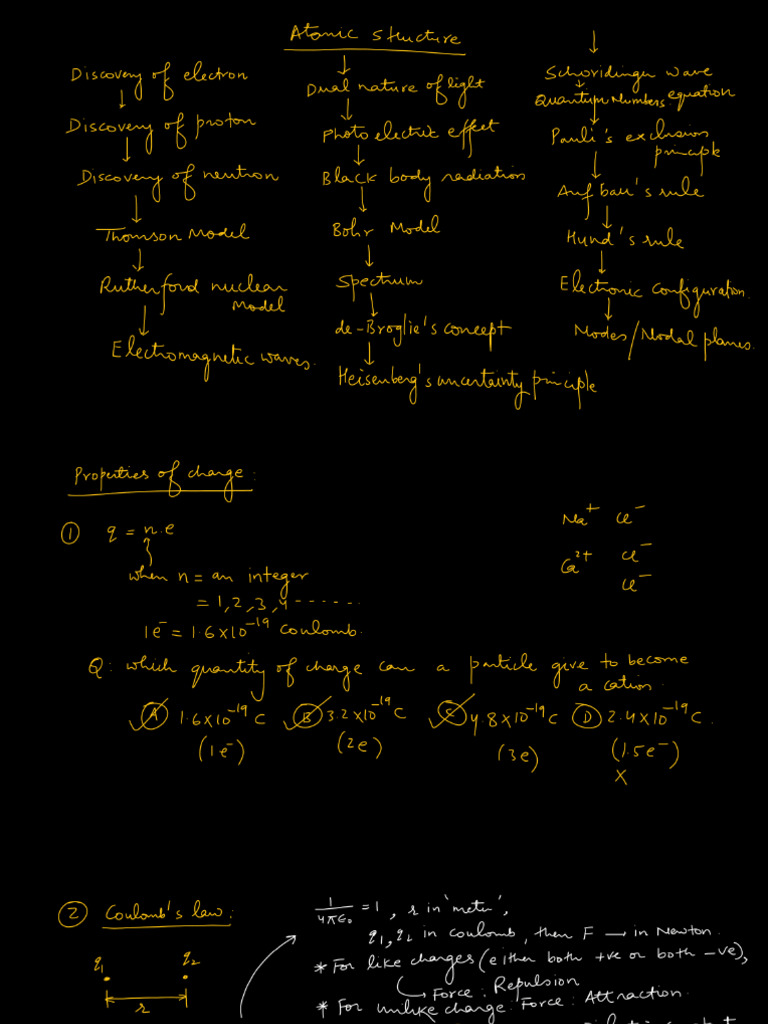 Atomic structure
Discovery of electron
↓
Discovery of proton
↓
Discovery of neutron
↓
Thomson Model
↓
Rutherford nuclear
Model
↓
Electromagnetic waves.
↓
Dual nature of light
↓
Photo electric effect
↓
Black body radiation
↓
Bohr Model
↓
Spectrum
↓
de-Broglie's concept
↓
Heisenberg's uncertainty principle
↓
Schoridinger wave
equation
↓
Quantum Numbers
↓
Pauli's exclusion
principle
↓
Aufbau's rule
↓
Hund's rule
↓
Electronic configuration.
↓
Nodes/Nodal planes.
Properties of charge:
① q = n.e
when n = an integer
= 1, 2, 3, 4 ------
1e⁻ = 1.6×10⁻¹⁹ coulomb.
Na⁺ Cl⁻
Ca²⁺ Cl⁻
Cl⁻
Q: which quantity of charge can a particle give to become
a cation.
Ⓐ 1.6×10⁻¹⁹ C Ⓑ 3.2×10⁻¹⁹ C Ⓒ 4.8×10⁻¹⁹ C Ⓓ 2.4×10⁻¹⁹ C.
(1e⁻) (2e) (3e) (1.5e⁻)
X
② Coulomb's law:
q₁ q₂
r
1/4πε₀ = 1, r in 'meter',
q₁, q₂ in coulomb, then F → in Newton.
* For like charges (either both +ve or both -ve),
Force: Repulsion
* For unlike charge: Force: Attraction.